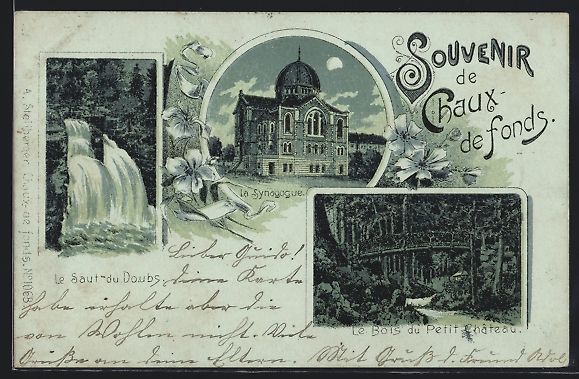 SOUVENIR
de
Chaux-
de fonds.
La Synagogue.
Le Saut-du Doubs.
Le Bois du Petit Château.
Lieber Guido!
deine Karte
habe erhalte aber die
von Wohlen nicht. Viele
Grüße an deine Eltern. Mit Gruß d. Freund
A. Steinberger Chaux de fonds. No 1068